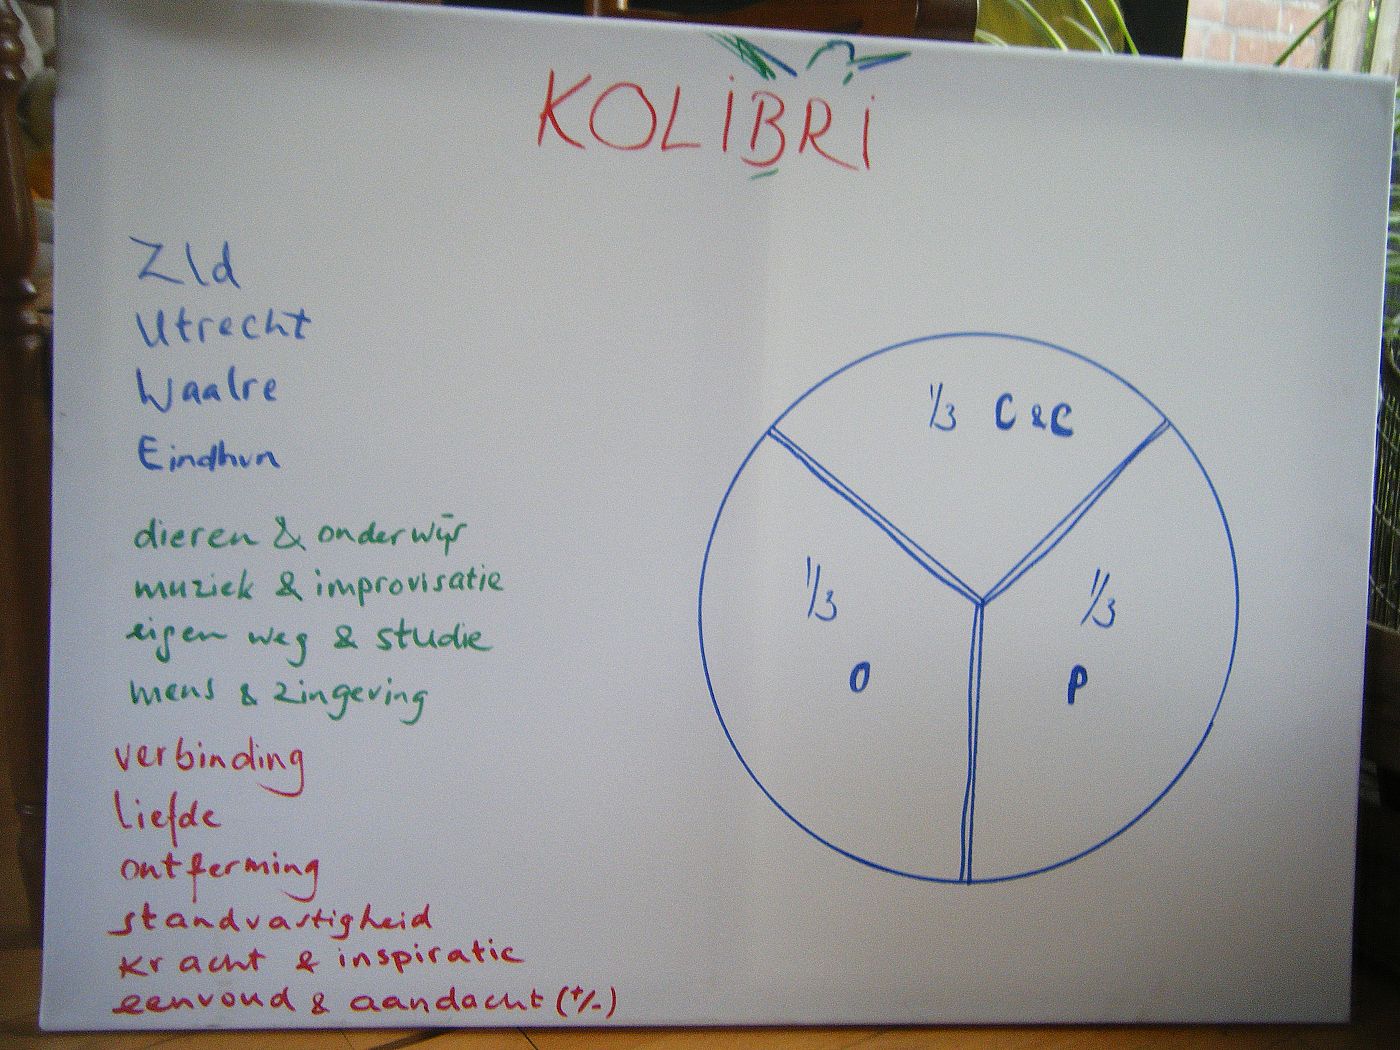 KOLIBRI
Zld
Utrecht
Waalre
Eindhvn
dieren & onderwijs
muziek & improvisatie
eigen weg & studie
mens & zingeving
verbinding
liefde
ontferming
standvastigheid
kracht & inspiratie
eenvoud & aandacht (+/-)
1/3 C & C
1/3
O
1/3
P